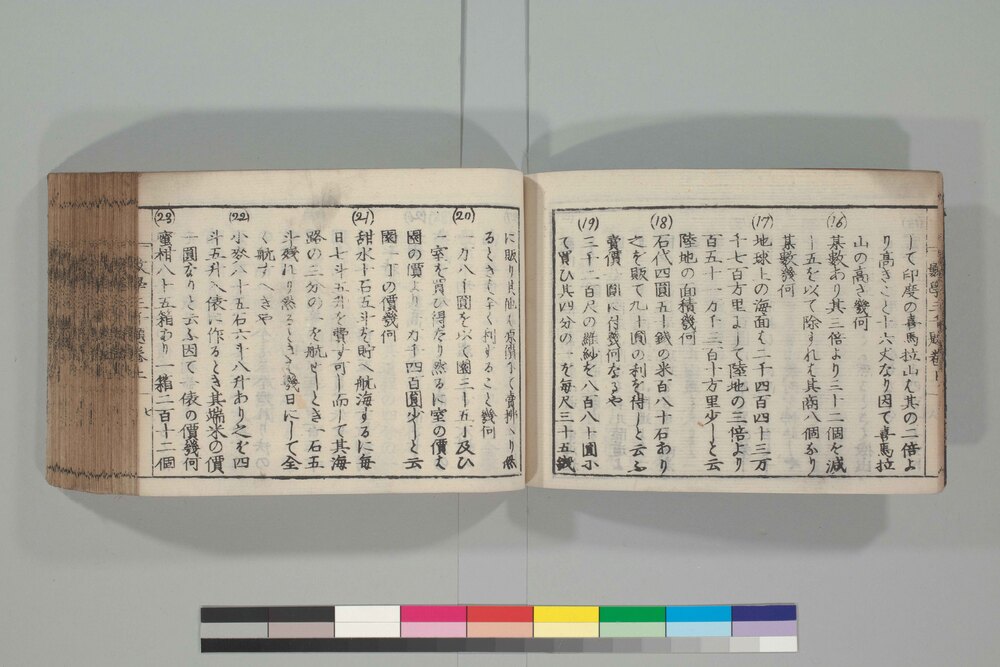 して印度の喜馬拉山は其の二倍よ
り高きこと十六丈なり因て喜馬拉
山の高さ幾何
(16)
某数あり其三倍より三十二個を減
し五を以て除すれは其商八個なり
某数幾何
(17)
地球上の海面は二千四百四十三万
千七百方里にして陸地の三倍より
百五十一万千三百十方里少しと云
陸地の面積幾何
(18)
石代四圓五十銭の米百八十石あり
之を販て九十圓の利を得しと云ふ
賣價一圓に付幾何なるや
(19)
二千二百尺の羅紗を八百八十圓に
て買ひ其四分の一を毎尺三十五銭
に販り其他は原價にて賣拂へり然
るときは幾何
(20)
一万八千圓を以て園三十五丁及ひ
室を買ひ得たり然るに室の價は
園の價より一万千四百圓少しと云
園一丁の價幾何
(21)
甜水十石五斗を貯へ航海するに毎
日七斗五升を費す可し而して其海
路の三分の を航せしとき一石五
斗残れり然るときは幾日にして全
く航すへきや
(22)
小麥八十五石六斗八升あり之を四
斗五升入俵に作るとき其端米の價
一圓なりと云ふ因て一俵の價幾何
(23)
蜜柑八十五箱あり一箱二百十二個